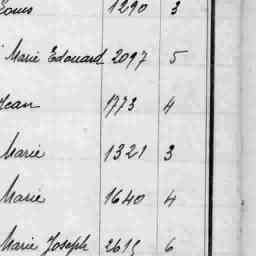 Louis 1290 3
Marie Edouard 2097 5
Jean 1773 4
Marie 1321 3
Marie 1640 4
Marie Joseph 2615 6